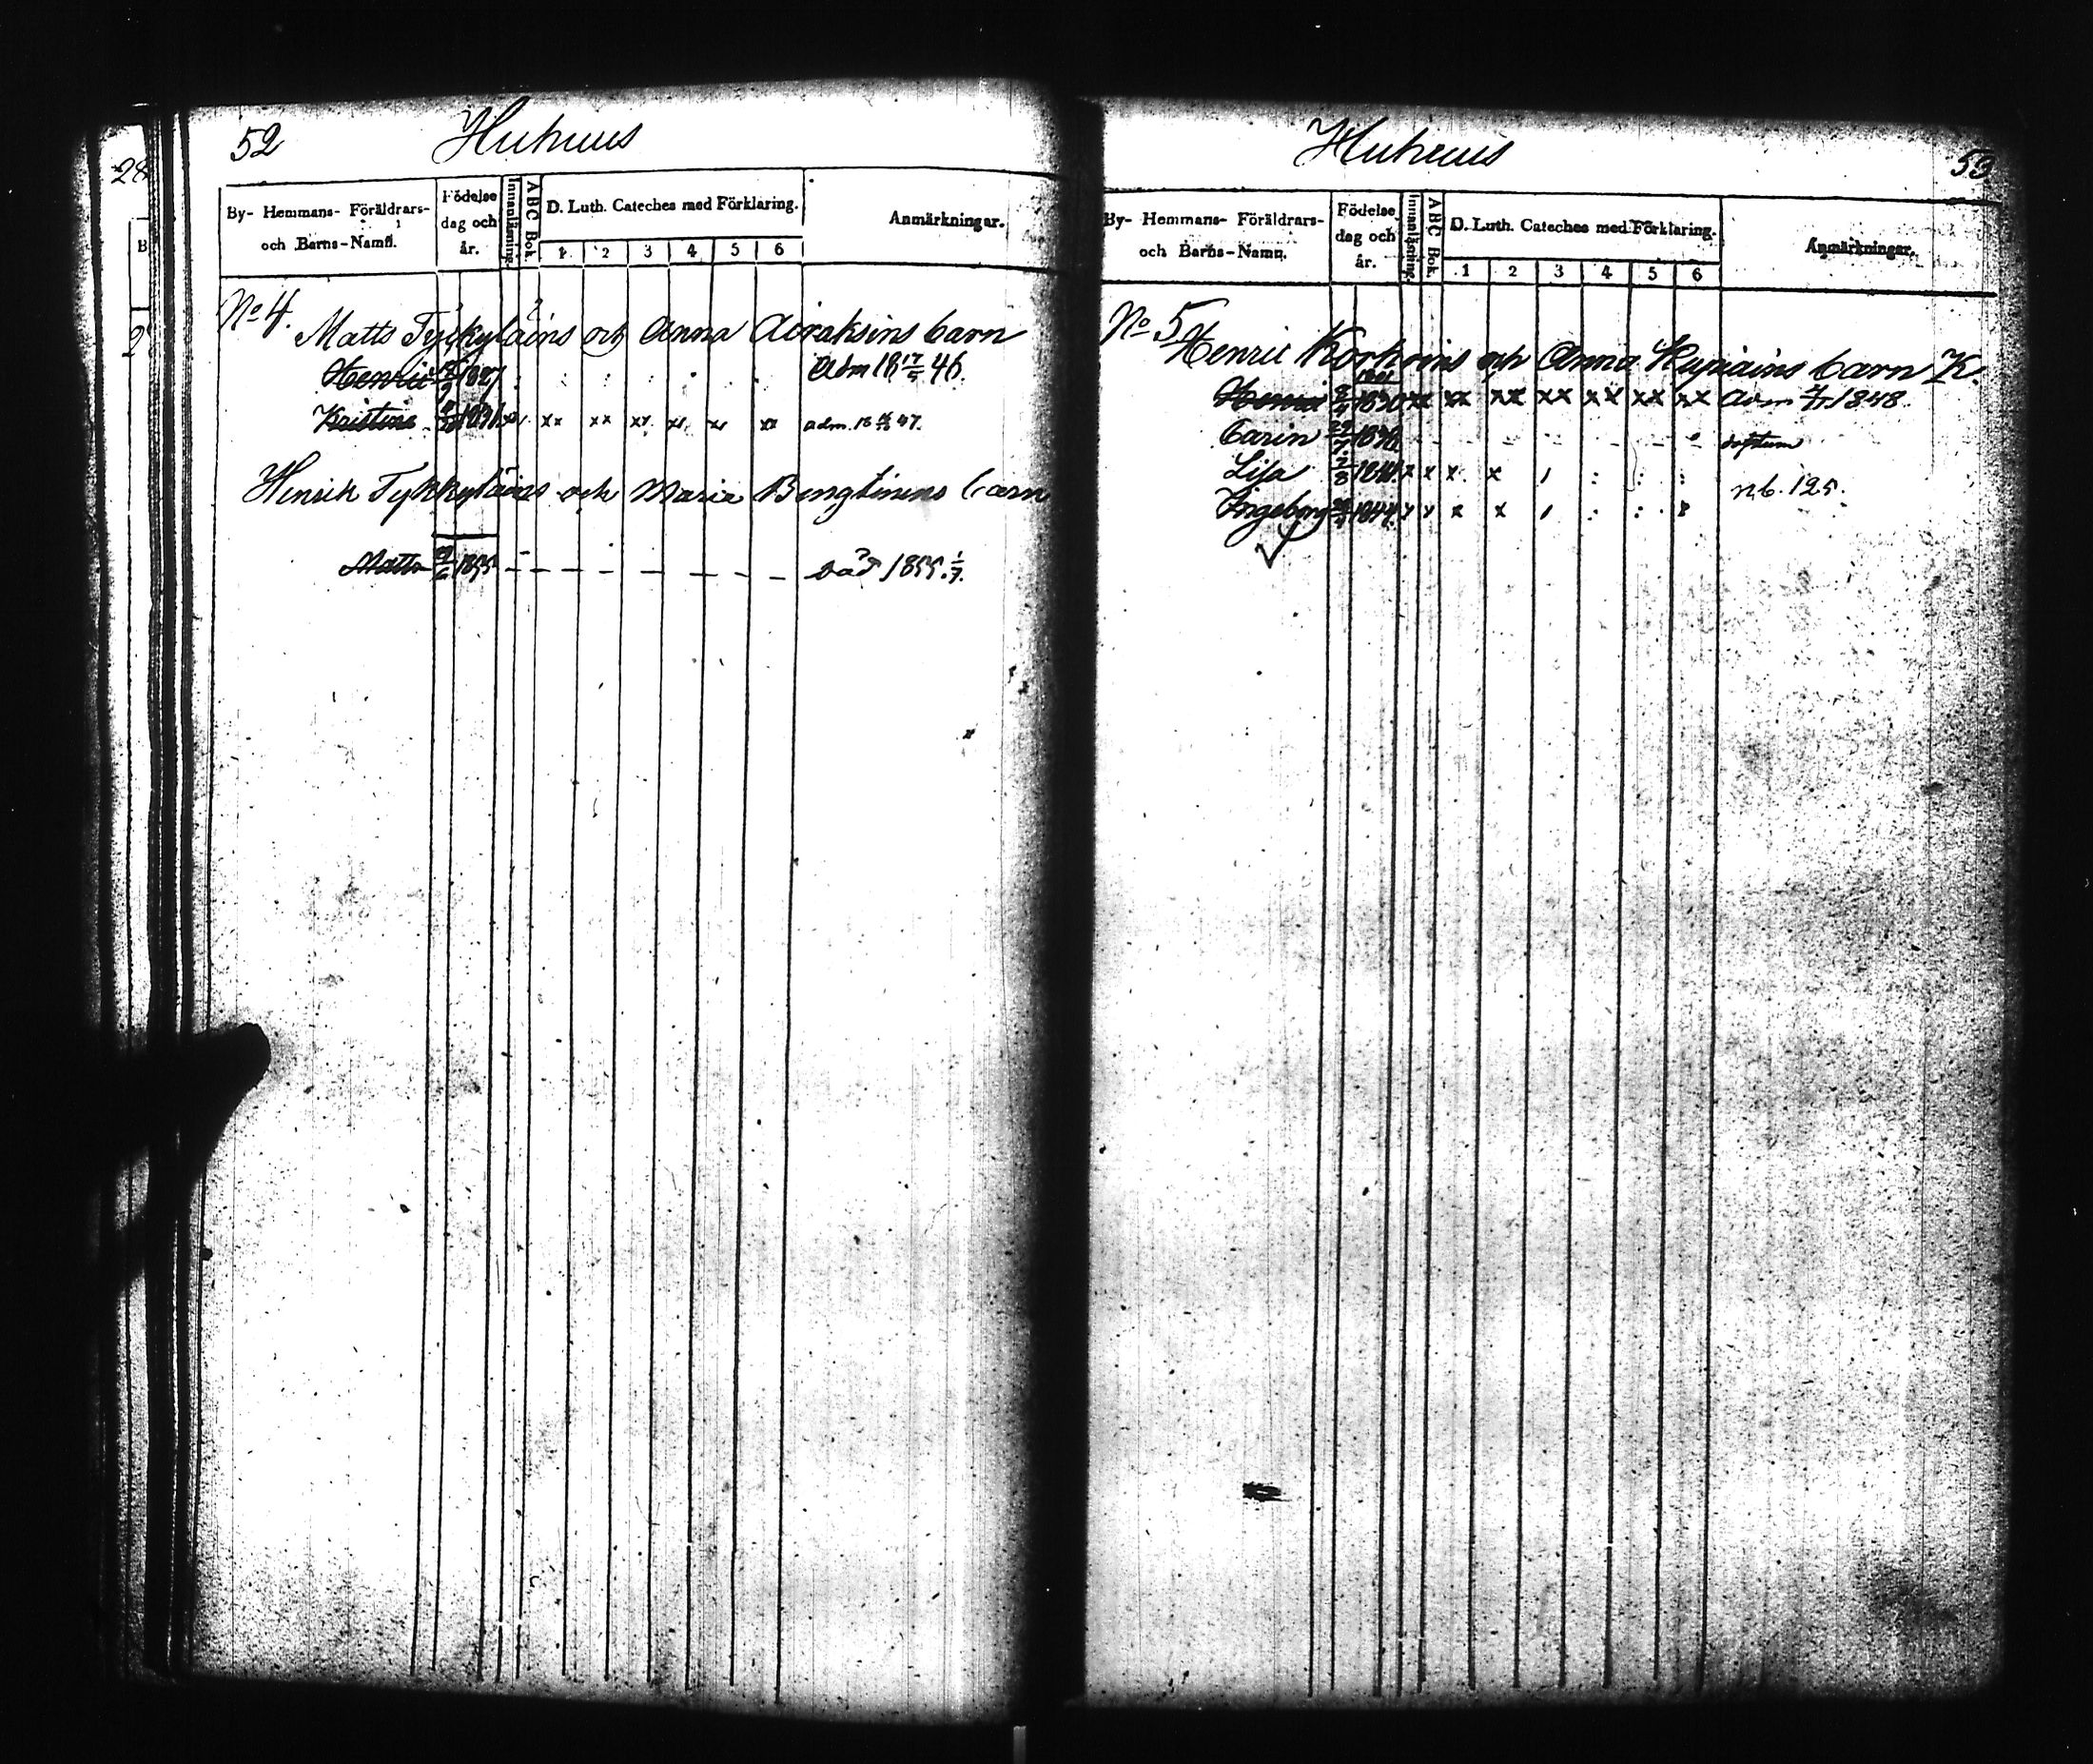 28
B
2
52 Huhuus
By- Hemmans- Föräldrars- och Barns-Namn.
Födelse dag och år.
Innanläsning.
ABC Bok.
D. Luth. Cateches med Förklaring.
1 2 3 4 5 6
Anmärkningar.
No 4. Matts Tyckyläins och Anna Avraksins barn
Henric 1827 adm 18 17/5 46.
Kristina xx xx xx xx xx adm. 18 47.
Henrik Tykkyläines och Maria Bengtinens barn
Matts 1855 — — — — — — död 1855. 1/7.
Huhuus 53
By- Hemmans- Föräldrars- och Barns-Namn.
Födelse dag och år.
Innanläsning.
ABC Bok.
D. Luth. Cateches med Förklaring.
1 2 3 4 5 6
Anmärkningar.
No 5 Henric Korhoins och Anna barn K.
Henric 1830 xx xx xx xx xx xx xx adm 1848.
Carin
Lisa x x x x nb. 125.
Ingeborg 1844 x x x x